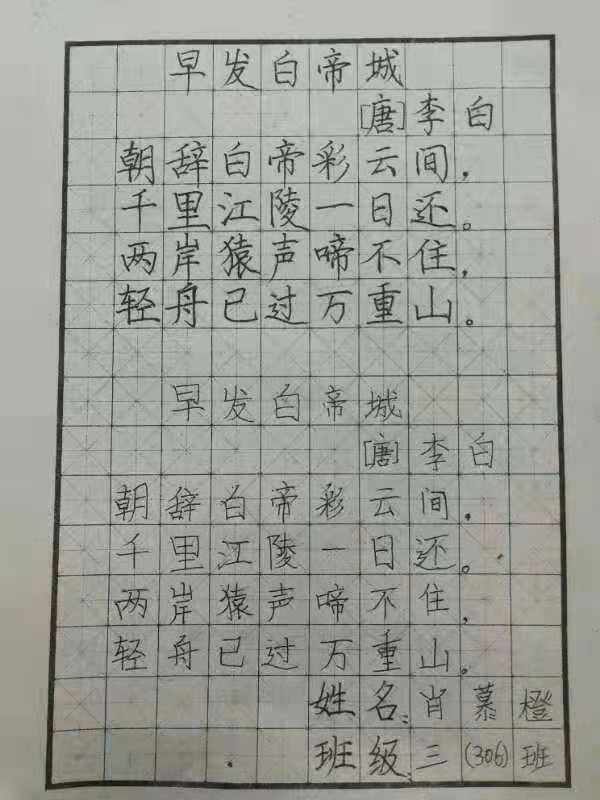 早发白帝城
[唐]李白
朝辞白帝彩云间，
千里江陵一日还。
两岸猿声啼不住，
轻舟已过万重山。
早发白帝城
[唐]李白
朝辞白帝彩云间，
千里江陵一日还。
两岸猿声啼不住，
轻舟已过万重山。
姓名：肖慕橙
班级：三(306)班